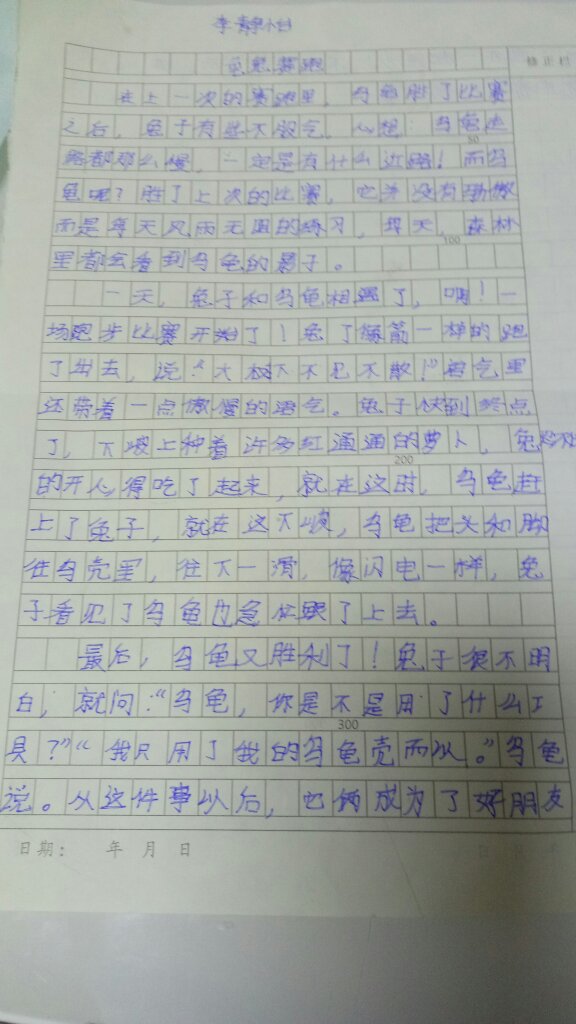 龟兔赛跑
修正栏
在上一次的赛跑里，乌龟胜了比赛
之后，兔子有些不服气，心想：乌龟走
路都那么慢，一定是有什么近路！而乌
龟呢？胜了上次的比赛，它并没有骄傲
而是每天风雨无阻的练习，每天，森林
里都会看到乌龟的影子。
一天，兔子和乌龟相遇了，嘀！一
场跑步比赛开始了！兔子像箭一样的跑
了出去，说“大树下不见不散！”语气里
还带着一点傲慢的语气。兔子快到终点
了，下坡上种着许多红通通的萝卜，兔
的开心得吃了起来，就在这时，乌龟赶
上了兔子，就在这下坡，乌龟把头和脚
往乌壳里，往下一滑，像闪电一样，兔
子看见了乌龟也急忙跟了上去。
最后，乌龟又胜利了！兔子很不明
白，就问：“乌龟，你是不是用了什么工
具？”“我只用了我的乌龟壳而以。”乌龟
说。从这件事以后，它俩成为了好朋友
80
100
200
300
日期： 年 月 日